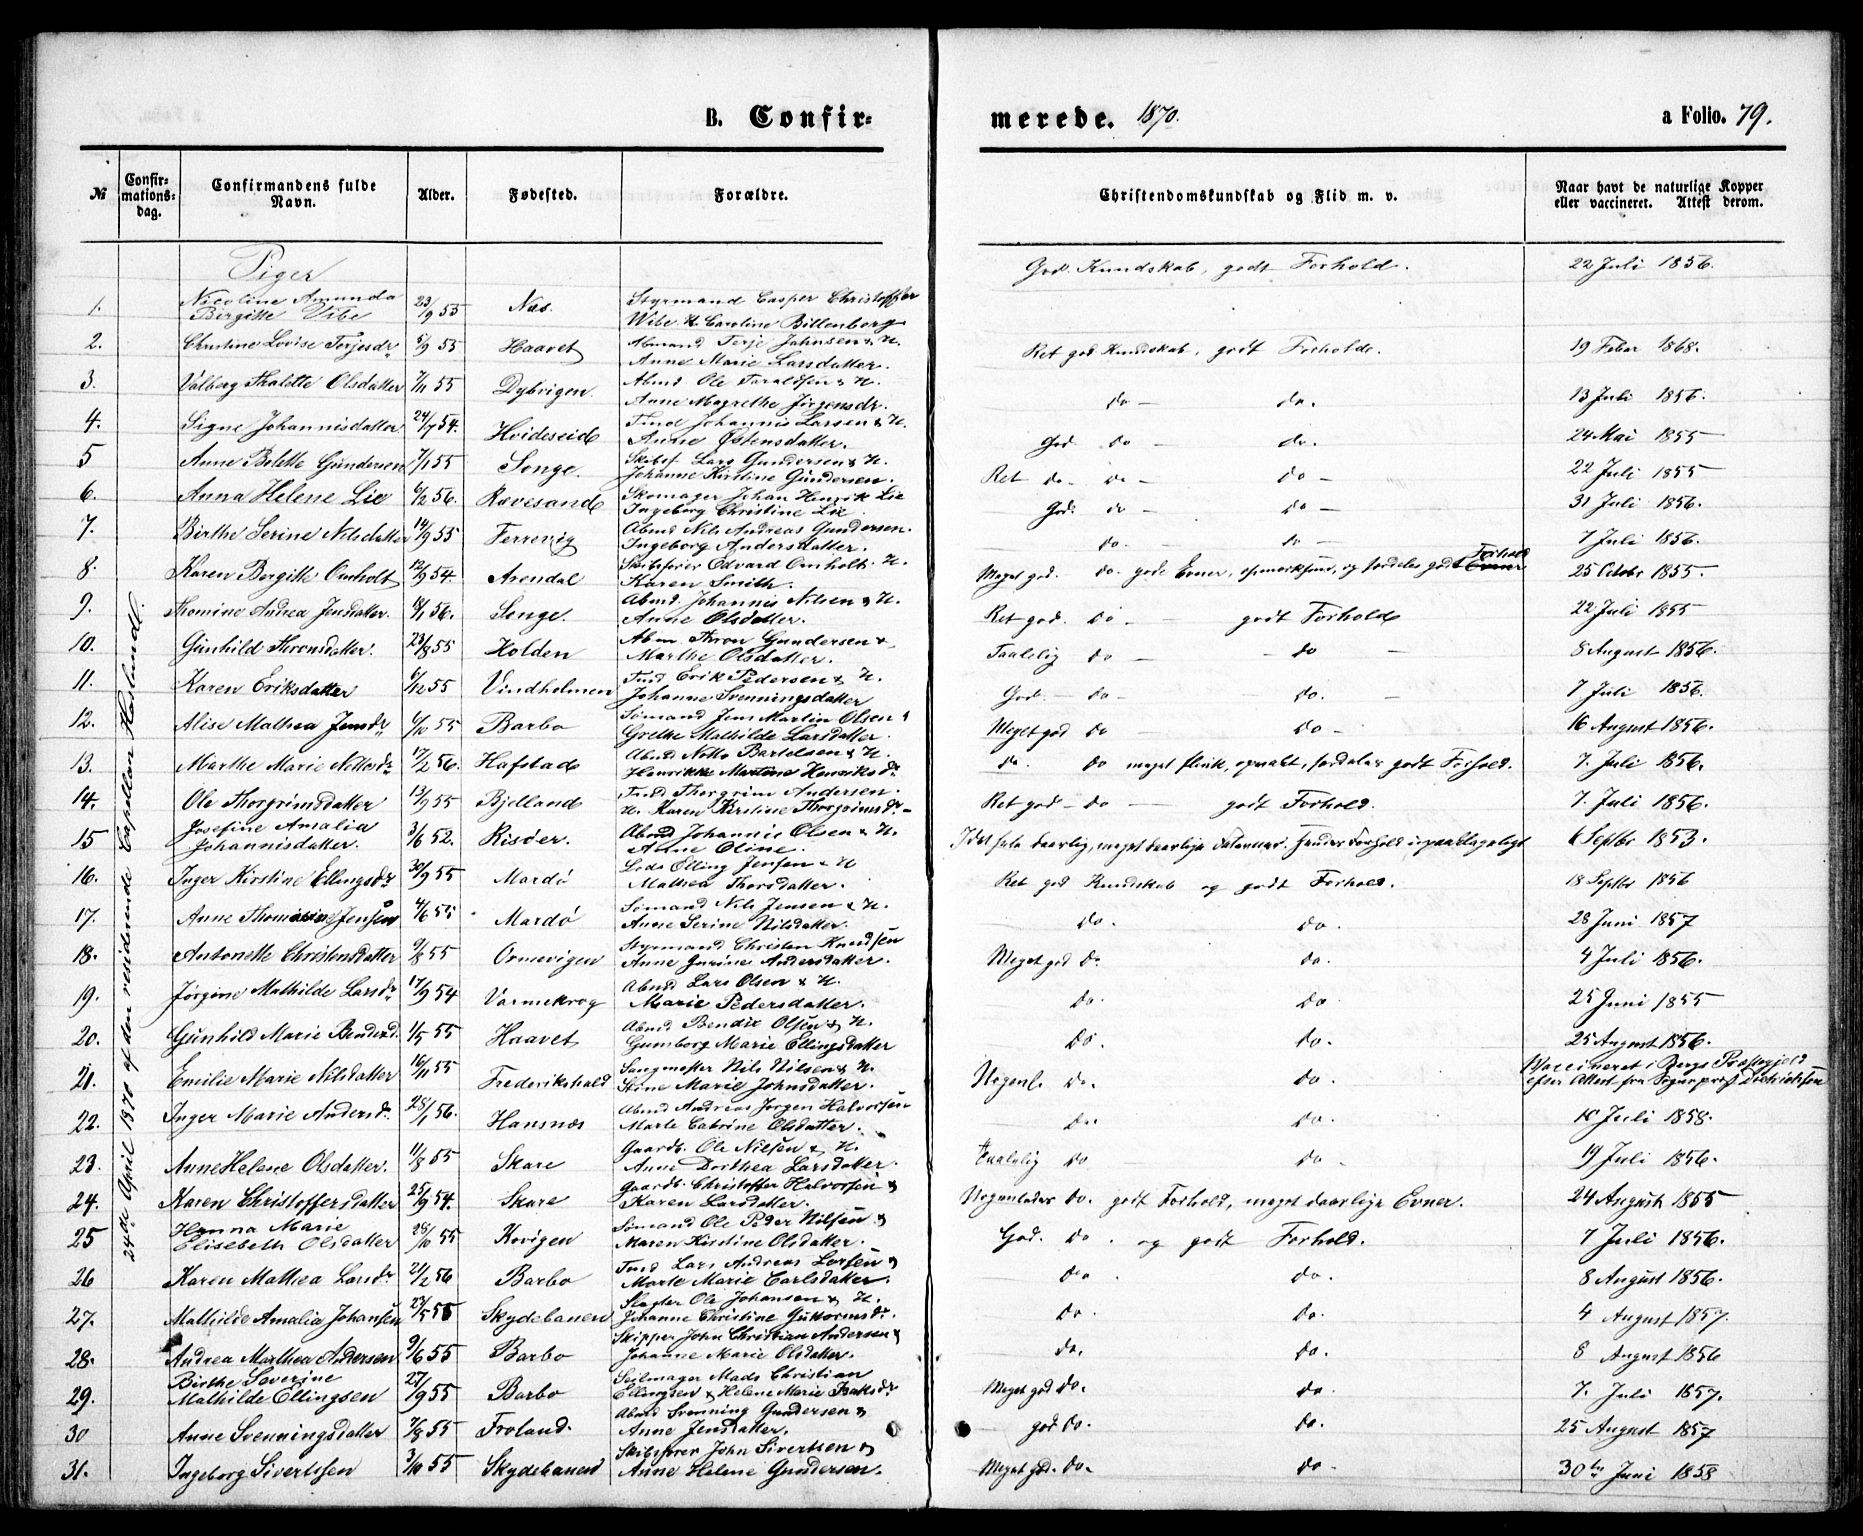 B. Confir-
merede. 1870.
a Folio. 79.
№
Confir-
mations-
dag.
Confirmandens fulde
Navn.
Alder.
Fødested.
Forældre.
Christendomskundskab og Flid m. v.
Naar havt de naturlige Kopper
eller vaccineret. Attest derom.
24de April 1870 af den residerende Capellan Haslund.
Piger
1. Nicoline Amunda Birgitte Vibe 23/9 55 Næs. Styrmand Casper Christoffer Wibe H. Caroline Billenberg God Kundskab, godt Forhold. 22 Juli 1856.
2. Christine Lovise Terjesdr 5/9 55 Haavet Abmand Terje Jahnsen & H. Anne Marie Larsdatter. Ret god Kundskab, godt Forhold. 19 Febr 1868.
3. Valberg Thalette Olsdatter 7/11 55 Dybvigen Abmd Ole Taraldsen & H. Anne Magrethe Jörgensdr. do — do. 13 Juli 1856.
4. Signe Johannisdatter 24/7 54. Hvideseid Tind Johannis Larsen & H. Anne Østensdatter. God do — do. 24 Mai 1855
5 Anne Belette Gundersen 7/1 55 Songe. Skibsf. Lars Gundersen & H. Johanne Kirstine Gundersen. Ret do — do — do — 22 Juli 1855
6. Anna Helene Lie 6/2 56. Rævesand Skomager Johan Henrik Lie Ingeborg Christine Lie. God. do — do — 31 Juli 1856.
7. Birthe Serine Nilsdatter 14/9 55 Ferrevig Abmd Nils Andreas Gundersen. Ingeborg Andersdatter. do. — do — 7 Juli 1856.
8. Karen Bergitte Omholt 12/9 54. Arendal Skibsfører Edvard Omholt. H. Karen Smith. Meget god. do gode Evner, opmærksom, og særdeles godt Forhold 25 Octobr 1855.
9. Thomine Andrea Jensdatter. 18/1 56. Songe. Abmd. Johannis Nilsen & H. Anne Olsdatter. Ret god. do — godt Forhold 22 Juli 1855
10. Gunhild Thronsdatter. 23/8 55 Holden Abm. Thron Gundersen & Marthe Olsdatter. Taalelig do — do — 8 August 1856.
11. Karen Eriksdatter 6/12 55 Vindholmen Tind Erik Pedersen & H. Johanne Svenningsdatter God. — do — do. — 7 Juli 1856.
12. Alise Mathea Jensdr 6/10 55 Barbo Sömand Jens Martin Olsen & Grethe Mathilde Larsdatter. Meget god do — do — 16 August 1856.
13. Marthe Marie Nottosdr 17/2 56. Hafstad Abmd Notto Bartelsen & H. Henrikke Martine Henriksdr. do. do meget flink, opvakt, særdeles godt Forhold. 7. Juli 1856.
14. Ole Thorgrimsdatter 13/9 55 Bjelland Tind Thorgrim Andersen. H. Karen Kirstine Thorgrimsdr — Ret god — do — godt Forhold. 7. Juli 1856.
15 Josefine Amalia Johannisdatter. 3/6 52. Risöer. Abmd Johannis Olsen & H. Anne Oline. 6 Septbr 1853.
16. Inger Kirstine Ellingsdr 30/9 55 Mardö Lods Elling Jensen & H Mathea Thorsdatter. Ret god Kundskab og godt Forhold. 18 Septbr 1856
17. Anne Thomine Jensen 4/6 55 Mardö Sömand Nils Jensen & H. Anne Serine Nilsdatter. do. do. 28 Juni 1857
18. Antonette Christensdatter 9/8 55 Ormevigen Styrmand Christen Knudsen Anne Gurine Andersdatter. Meget god Do. do. 4 Juli 1856.
19. Jörgine Mathilde Larsdr 17/9 54 Varmekrog Abmd Lars Olsen & H. Marie Pedersdatter. do. do 25 Juni 1855
20. Gunhild Marie Bendixd. 1/5 55 Haavet Abmd Bendix Olsen & H. Gumborg Marie Ellingsdatter do. do. 25 August 1856.
21. Emilie Marie Nilsdatter 16/11 55 Frederikshald Sangmester Nils Nilsen & H. Stine Marie Johnsdatter. Nogenl. do. do. Vaccineret i Bergs Præstegjeld efter Attest fra Sognepræst Dietrichsen
22. Inger Marie Andersd. 28/1 56. Hansnæs Abmd Andreas Jorgen Halvorsen Marte Catrine Olsdatter. do. do. 10 Juli 1858.
23. Anne Helene Olsdatter. 11/8 55 Skare Gaardb. Ole Nilsen & H. Anne Dorthea Larsdatter. Taalelig do — do. 19 Juli 1856.
24. Karen Christoffersdatter 25/9 54. Skare Gaardb. Christoffer Halvorsen & Karen Larsdatter. Nogenledes do. godt Forhold, meget daarlige Evner. 24 August 1855
25 Hanna Marie Elisebeth Olsdatter 28/10 55 Kovigen Sömand Ole Peder Nilsen & Maren Kirstine Olsdatter. God. do. og godt Forhold. 7 Juli 1856.
26 Karen Mathea Larsdr 21/2 56 Barbo Tind Lars Andreas Larsen & Marte Marie Carlsdatter. do. do. 8 August 1856.
27. Mathilde Amalia Johansen 23/5 55 Skydebanen Slagter Ole Johansen & H. Johanne Christine Guttormsdr. do. do. 4 August 1857.
28. Andrea Marthea Andersen 9/6 55 Barbo Skipper John Christian Andersen & Johanne Marie Olsdatter. do. do. 8 August 1856
29. Birthe Severine Mathilde Ellingsen 27/9 55 Barbo Seilmager Mads Christian Ellingsen & Helene Marie Isaksdr Meget god do. do. 7. Juli 1857.
30 Anne Svenningsdatter 7/8 55 Froland. Abmd Svenning Gundersen & Anne Jensdatter. god do. do. 25 August 1857
31. Ingeborg Sivertssen 3/10 55 Skydebanen Skibsfører John Sivertsen & Anne Helene Gundersen. Meget god. do. do. 30te Juni 1858